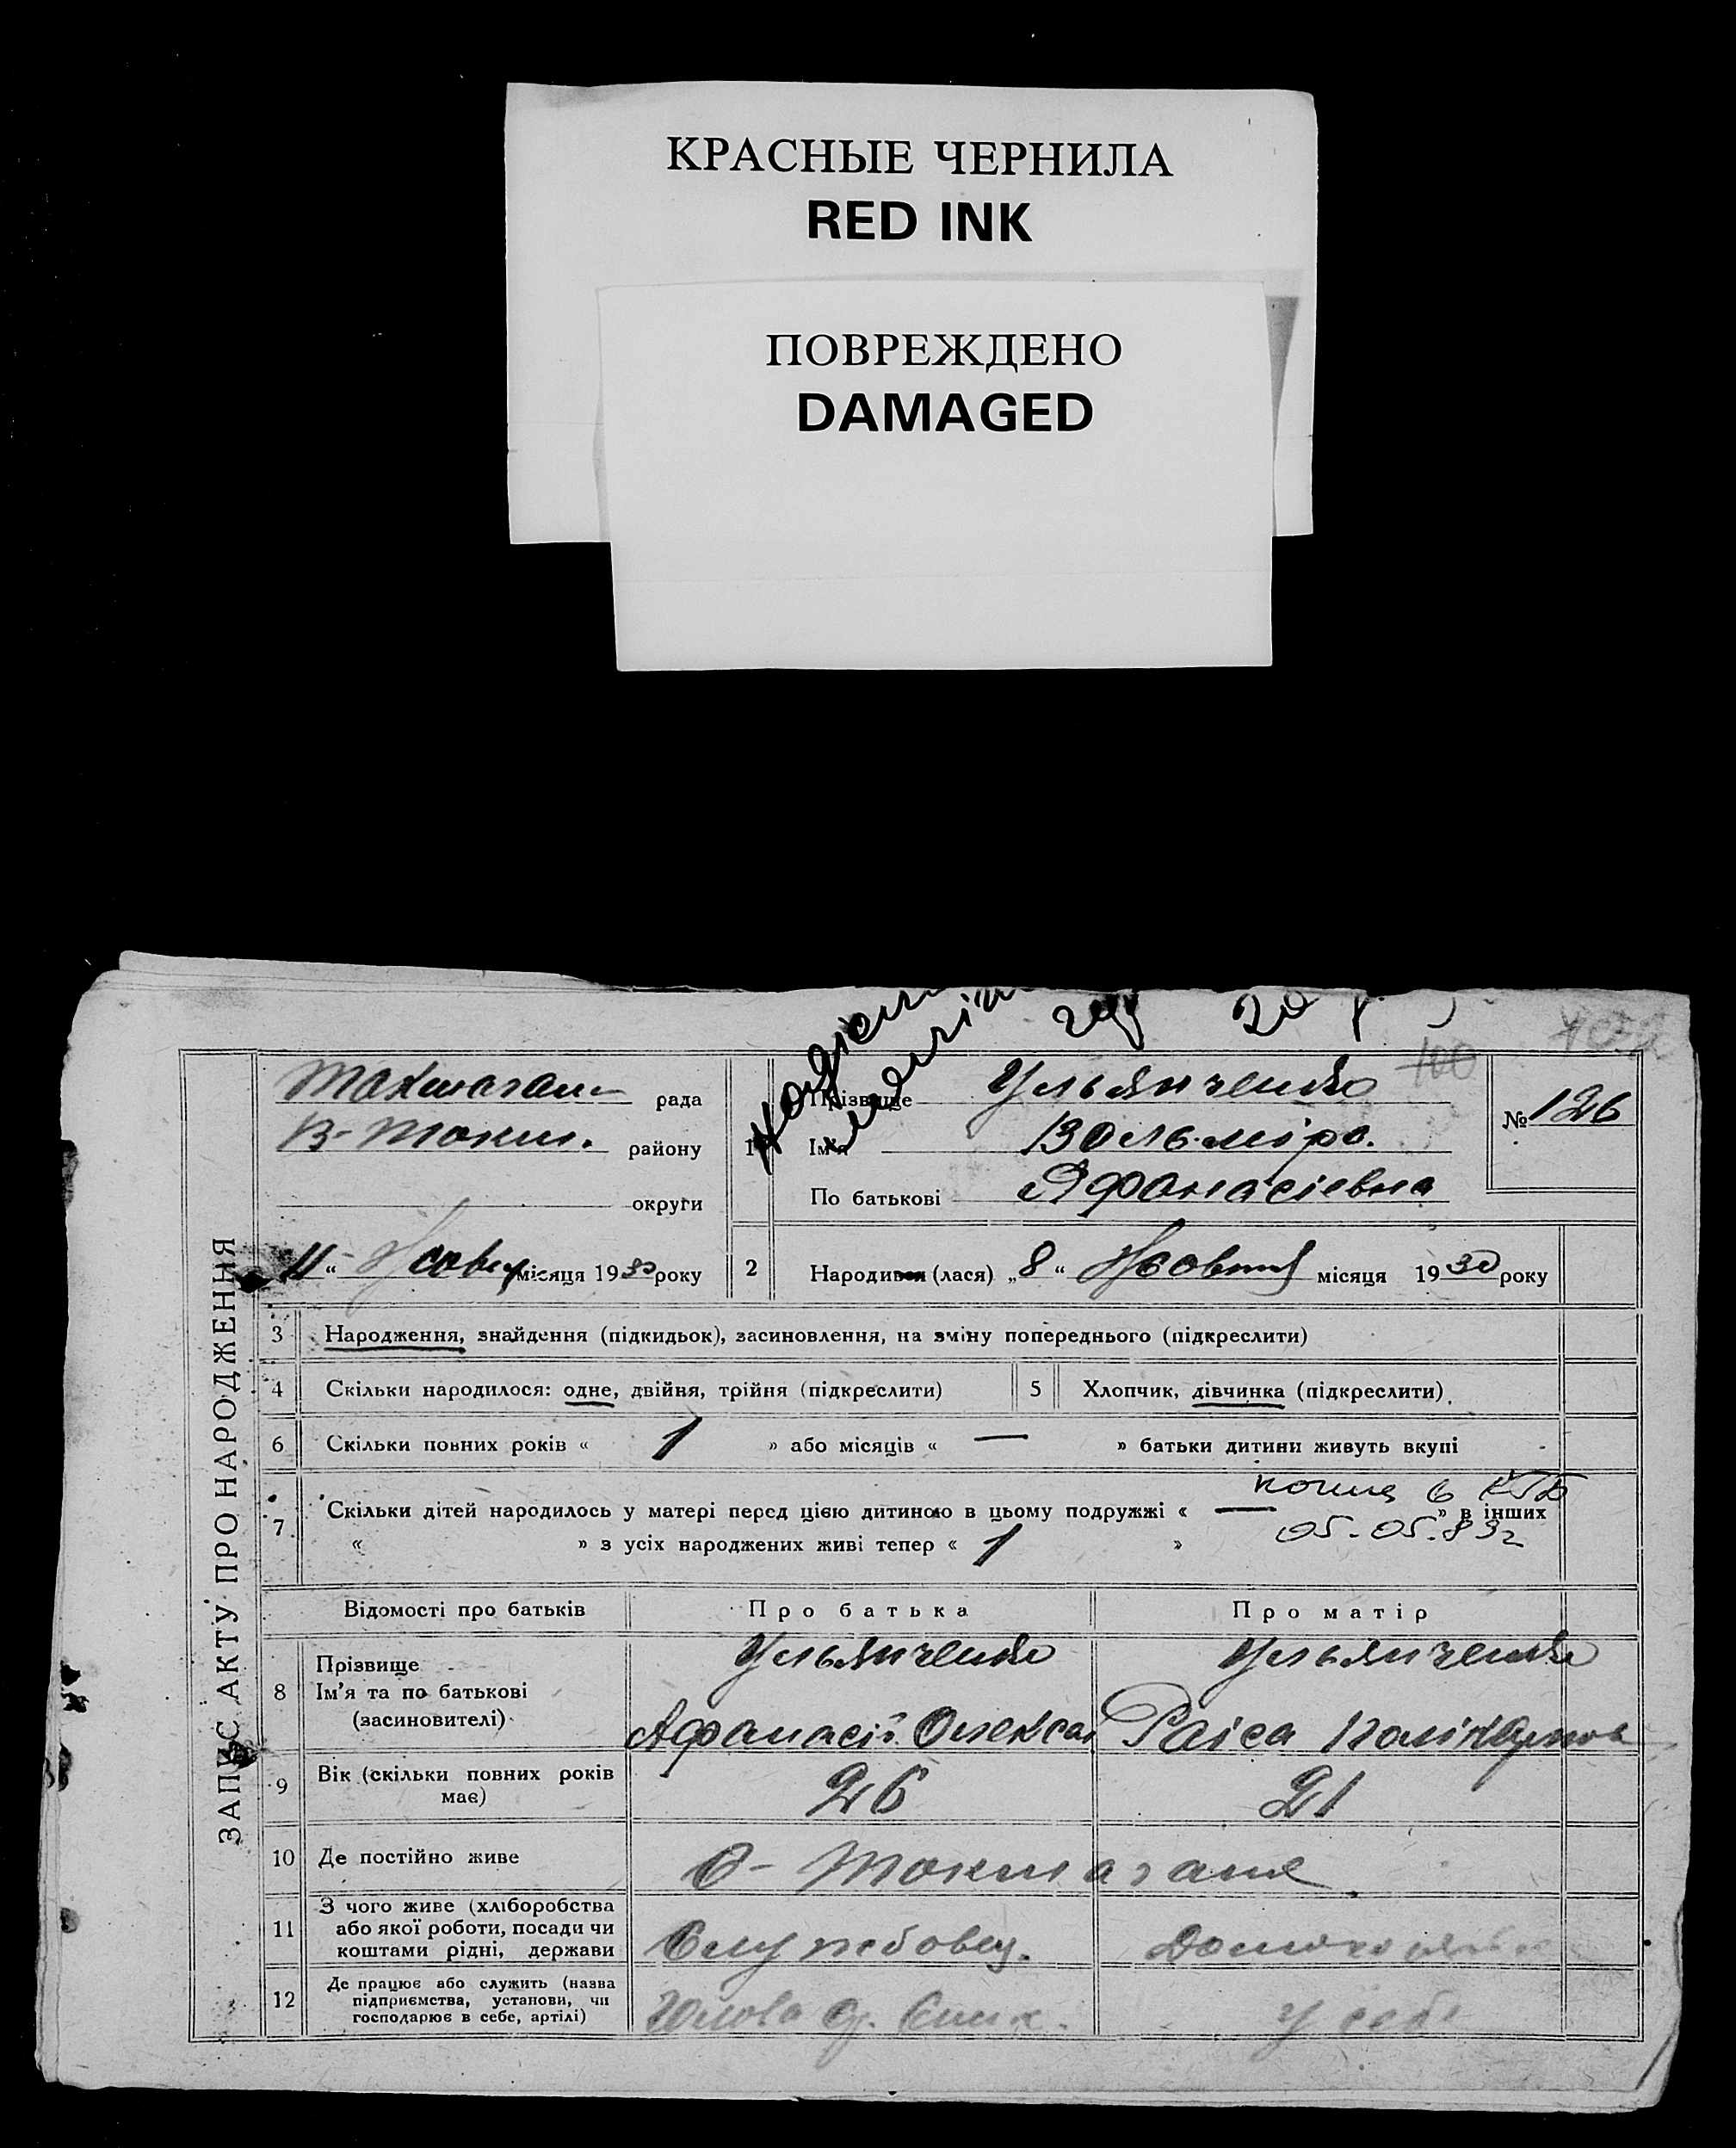 КРАСНЫЕ ЧЕРНИЛА
RED INK
ПОВРЕЖДЕНО
DAMAGED
ЗАПИС АКТУ ПРО НАРОДЖЕННЯ
рада
В-Токм. району
округи
11 “ Жовт місяця 1930 року
100
№ 126
1 Прізвище Ульянченко
Ім'я Вольміра.
По батькові Афонасієвна
2 Народився (лася) „ 8 “ Жовтня місяця 1930 року
3 Народження, знайдення (підкидьок), засиновлення, на зміну попереднього (підкреслити)
4 Скільки народилося: одне, двійня, трійня (підкреслити) 5 Хлопчик, дівчинка (підкреслити).
6 Скільки повних років « 1 » або місяців « — » батьки дитини живуть вкупі
копия в КГБ
7 Скільки дітей народилось у матері перед цією дитиною в цьому подружжі « — » в інших
05-05.83г
« » з усіх народжених живі тепер « 1 »
Відомості про батьків Про батька Про матір
8 Прізвище Ульянченко Ульянченко
Ім'я та по батькові
(засиновителі) Афанасій Олексан Раіса Полікарпов
9 Вік (скільки повних років має) 26 21
10 Де постійно живе В-Токмаган
11 З чого живе (хліборобства або якої роботи, посади чи коштами рідні, держави Службовец. Домохозяйка
12 Де працює або служить (назва підприємства, установи, чи господарює в себе, артілі) у себе